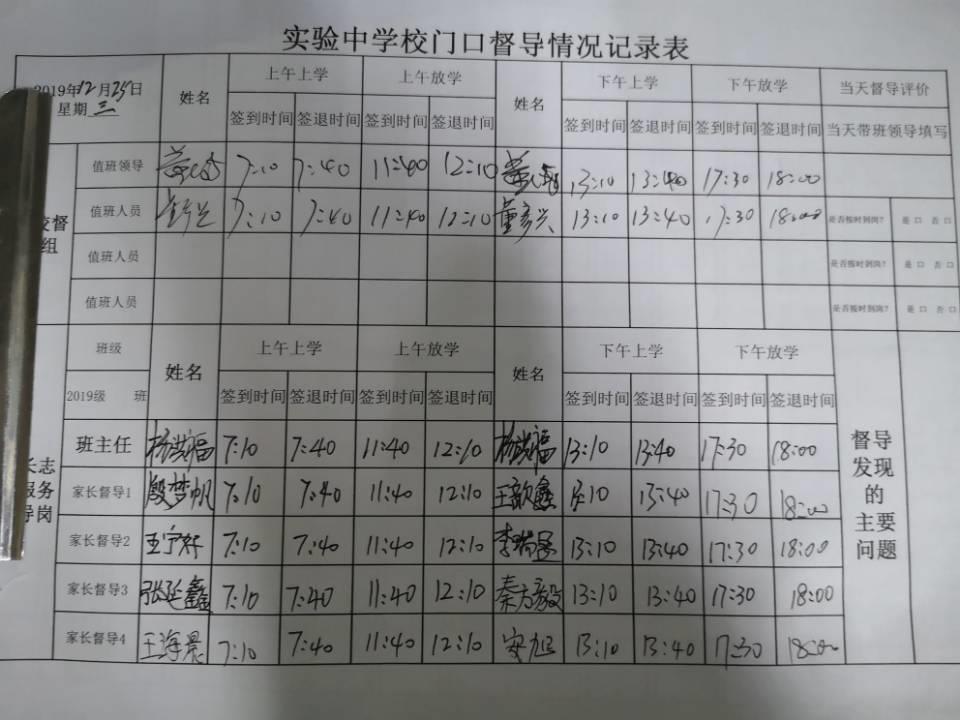 实验中学校门口督导情况记录表
2019年12月25日
星期三
姓名 上午上学 上午放学 姓名 下午上学 下午放学 当天督导评价
签到时间 签退时间 签到时间 签退时间 签到时间 签退时间 签到时间 签退时间 当天带班领导填写
值班领导 7:10 7:40 11:40 12:10 13:10 13:40 17:30 18:00
校督
组
值班人员 7:10 7:40 11:40 12:10 董彦兴 13:10 13:40 17:30 18:00 是否按时到岗? 是口 否口
值班人员 是否按时到岗? 是口 否口
值班人员 是否按时到岗? 是口 否口
班级 姓名 上午上学 上午放学 姓名 下午上学 下午放学
2019级 班 签到时间 签退时间 签到时间 签退时间 签到时间 签退时间 签到时间 签退时间
班主任 杨洪福 7:10 7:40 11:40 12:10 杨洪福 13:10 13:40 17:30 18:00
长志
服务
导岗
家长督导1 殷梦帆 7:10 7:40 11:40 12:10 王歆鑫 13:10 13:40 17:30 18:00
家长督导2 7:10 7:40 11:40 12:10 13:10 13:40 17:30 18:00
家长督导3 张延鑫 7:10 7:40 11:40 12:10 秦方毅 13:10 13:40 17:30 18:00
家长督导4 王海晨 7:10 7:40 11:40 12:10 安旭 13:10 13:40 17:30 18:00
督导
发现
的
主要
问题